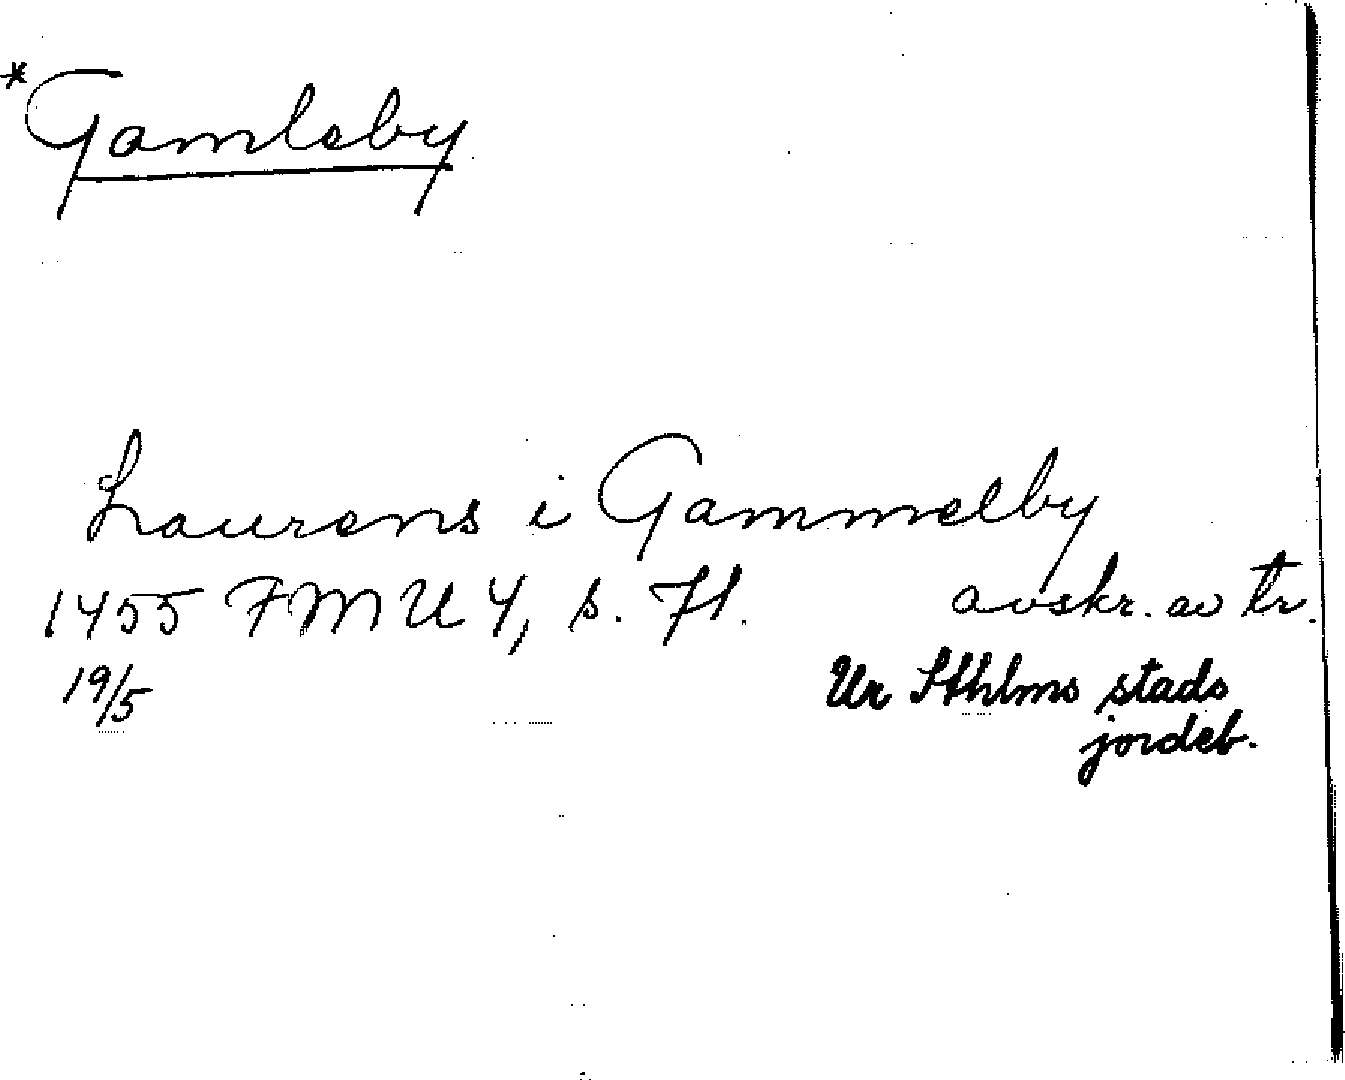 *Gamleby
Laurens i Gammelby
1455 FMU 4, s. 71. avskr. av tr.
19/5 Ur Sthlms stads
jordeb.